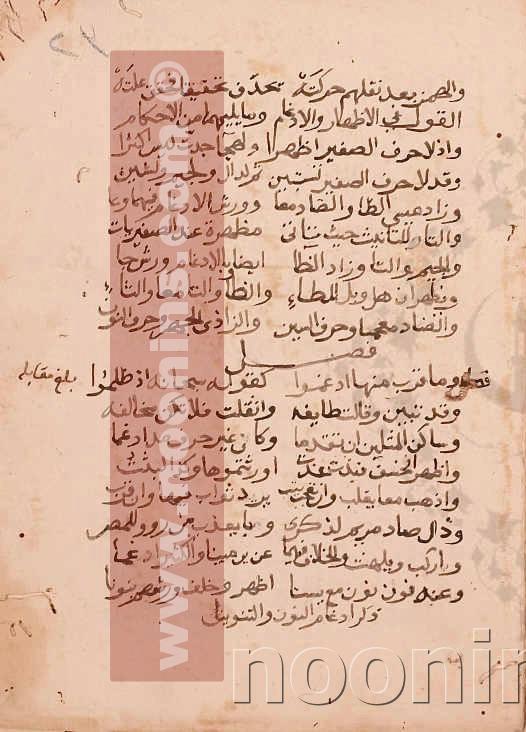 والهمز بعد نقلهم حركته تحذف تخفيفا فحقق علته
القول في الاظهار والادغام وما يليهما من الاحكام
واذ لاحرف الصفير اظهرا ولهجا جدت ليس اكثرا
وقد لاحرف الصفير تستبين
وزاد عيسى الظا والضاد معا وورش الادغام فيهما وعا
والتاء للتانيث حيث تاتي مظهرة عند الصفير يات
والجيم والثا وزاد الظا ايضا وبالادغام ورش جا
ويظهران هل وبل للطاء والظا والتا معا والثاء
والضاد معجما وحرف السين والزاي ذي الجهر وحرف النون
فصل
فصل وما قرب منها ادغموا كقوله سبحانه اذ ظلموا
بلغ مقابله
وقد تبين وقالت طايفه واثقلت فلا تكن مخالفه
وساكن المثلين ان تقدما وكان غير حرف مد ادغما
واظهرا نخسف نبذت عذت اورثتموها وكذا لبثت
واذهب معا يغلب وان تعجب يرد ثواب فيهما وان قرب
ودال صاد مريم لذكر وبا يعذب من رووا للمصر
واركب ويلهث والخلاف فيهما عن ابن مينا والكثير ادغما
وعنه نون نون مع يسينا اظهر وخلف ورشهم بنونا
ذكر ادغام النون والتنوين
www.noonins.com ©
noonin